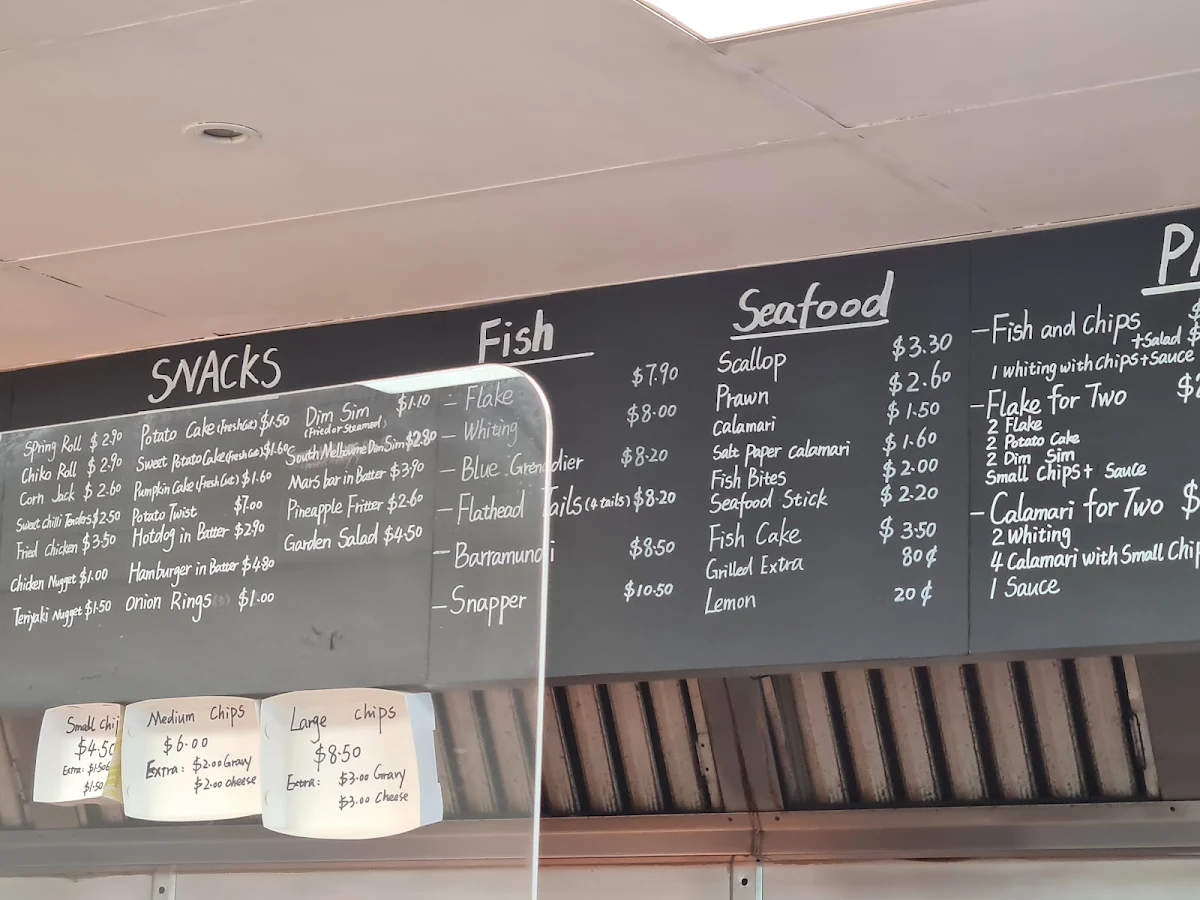 SNACKS
Spring Roll $2.90
Chiko Roll $2.90
Corn Jack $2.60
Sweet chilli Tenders $2.50
Fried Chicken $3.50
Chicken Nugget $1.00
Teriyaki Nugget $1.50
Potato Cake (Fresh Cut) $1.50
Sweet Potato Cake (Fresh Cut) $1.60
Pumpkin Cake (Fresh Cut) $1.60
Potato Twist $7.00
Hotdog in Batter $2.90
Hamburger in Batter $4.80
Onion Rings $1.00
Dim Sim $1.10
(Fried or Steamed)
South Melbourne Dim Sim $2.80
Mars bar in Batter $3.90
Pineapple Fritter $2.60
Garden Salad $4.50
Fish
- Flake $7.90
- Whiting $8.00
- Blue Grenadier $8.20
- Flathead Tails (4 tails) $8.20
- Barramundi $8.50
- Snapper $10.50
Seafood
Scallop $3.30
Prawn $2.60
Calamari $1.50
Salt Paper calamari $1.60
Fish Bites $2.00
Seafood Stick $2.20
Fish Cake $3.50
Grilled Extra 80¢
Lemon 20¢
- Fish and Chips $
+ Salad $
1 whiting with chips + Sauce
- Flake for Two $
2 Flake
2 Potato Cake
2 Dim Sim
Small Chips + Sauce
- Calamari for Two $
2 Whiting
4 Calamari with Small Chip
1 Sauce
Small chi
$4.50
Extra: $1.50
$1.50
Medium Chips
$6.00
Extra: $2.00 Gravy
$2.00 cheese
Large chips
$8.50
Extra: $3.00 Gravy
$3.00 Cheese